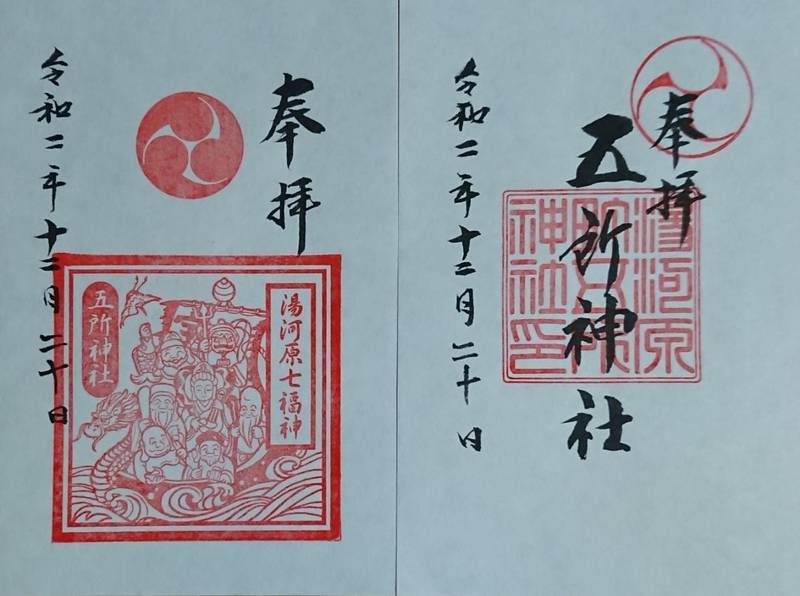 奉拝
五所神社
湯河原
神社印
令和二年十二月二十日
奉拝
湯河原七福神
五所神社
令和二年十二月二十日